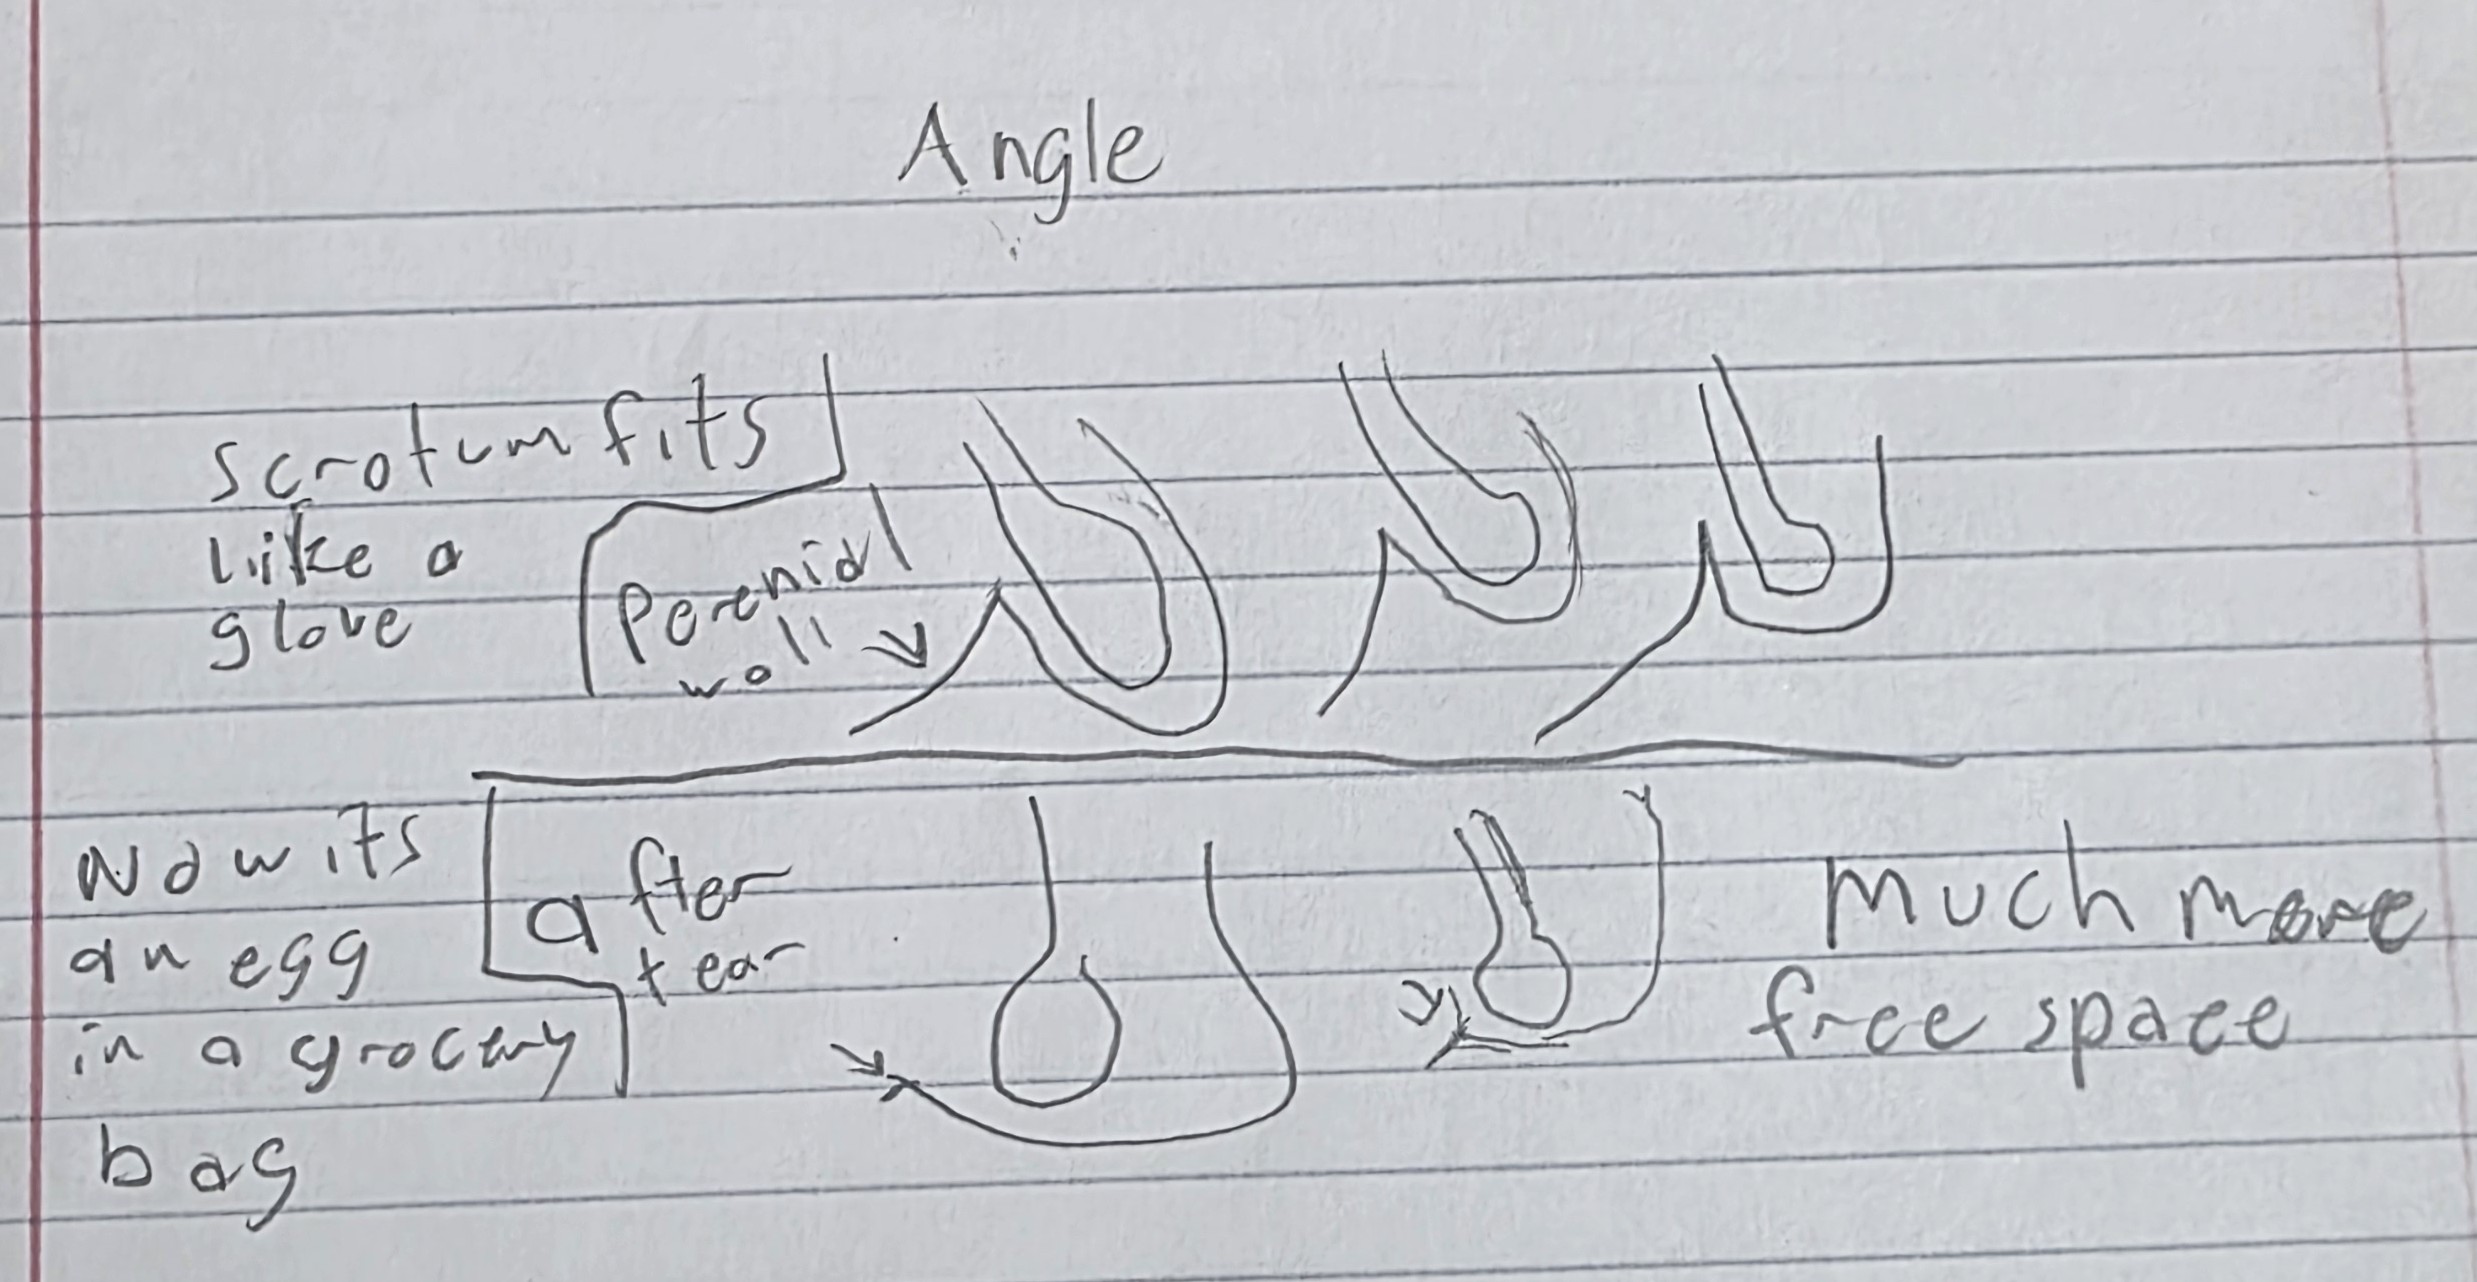 Angle
scrotum fits
like a
glove
Perenial
wall
Now its
an egg
in a grocery
bag
after
tear
much more
free space